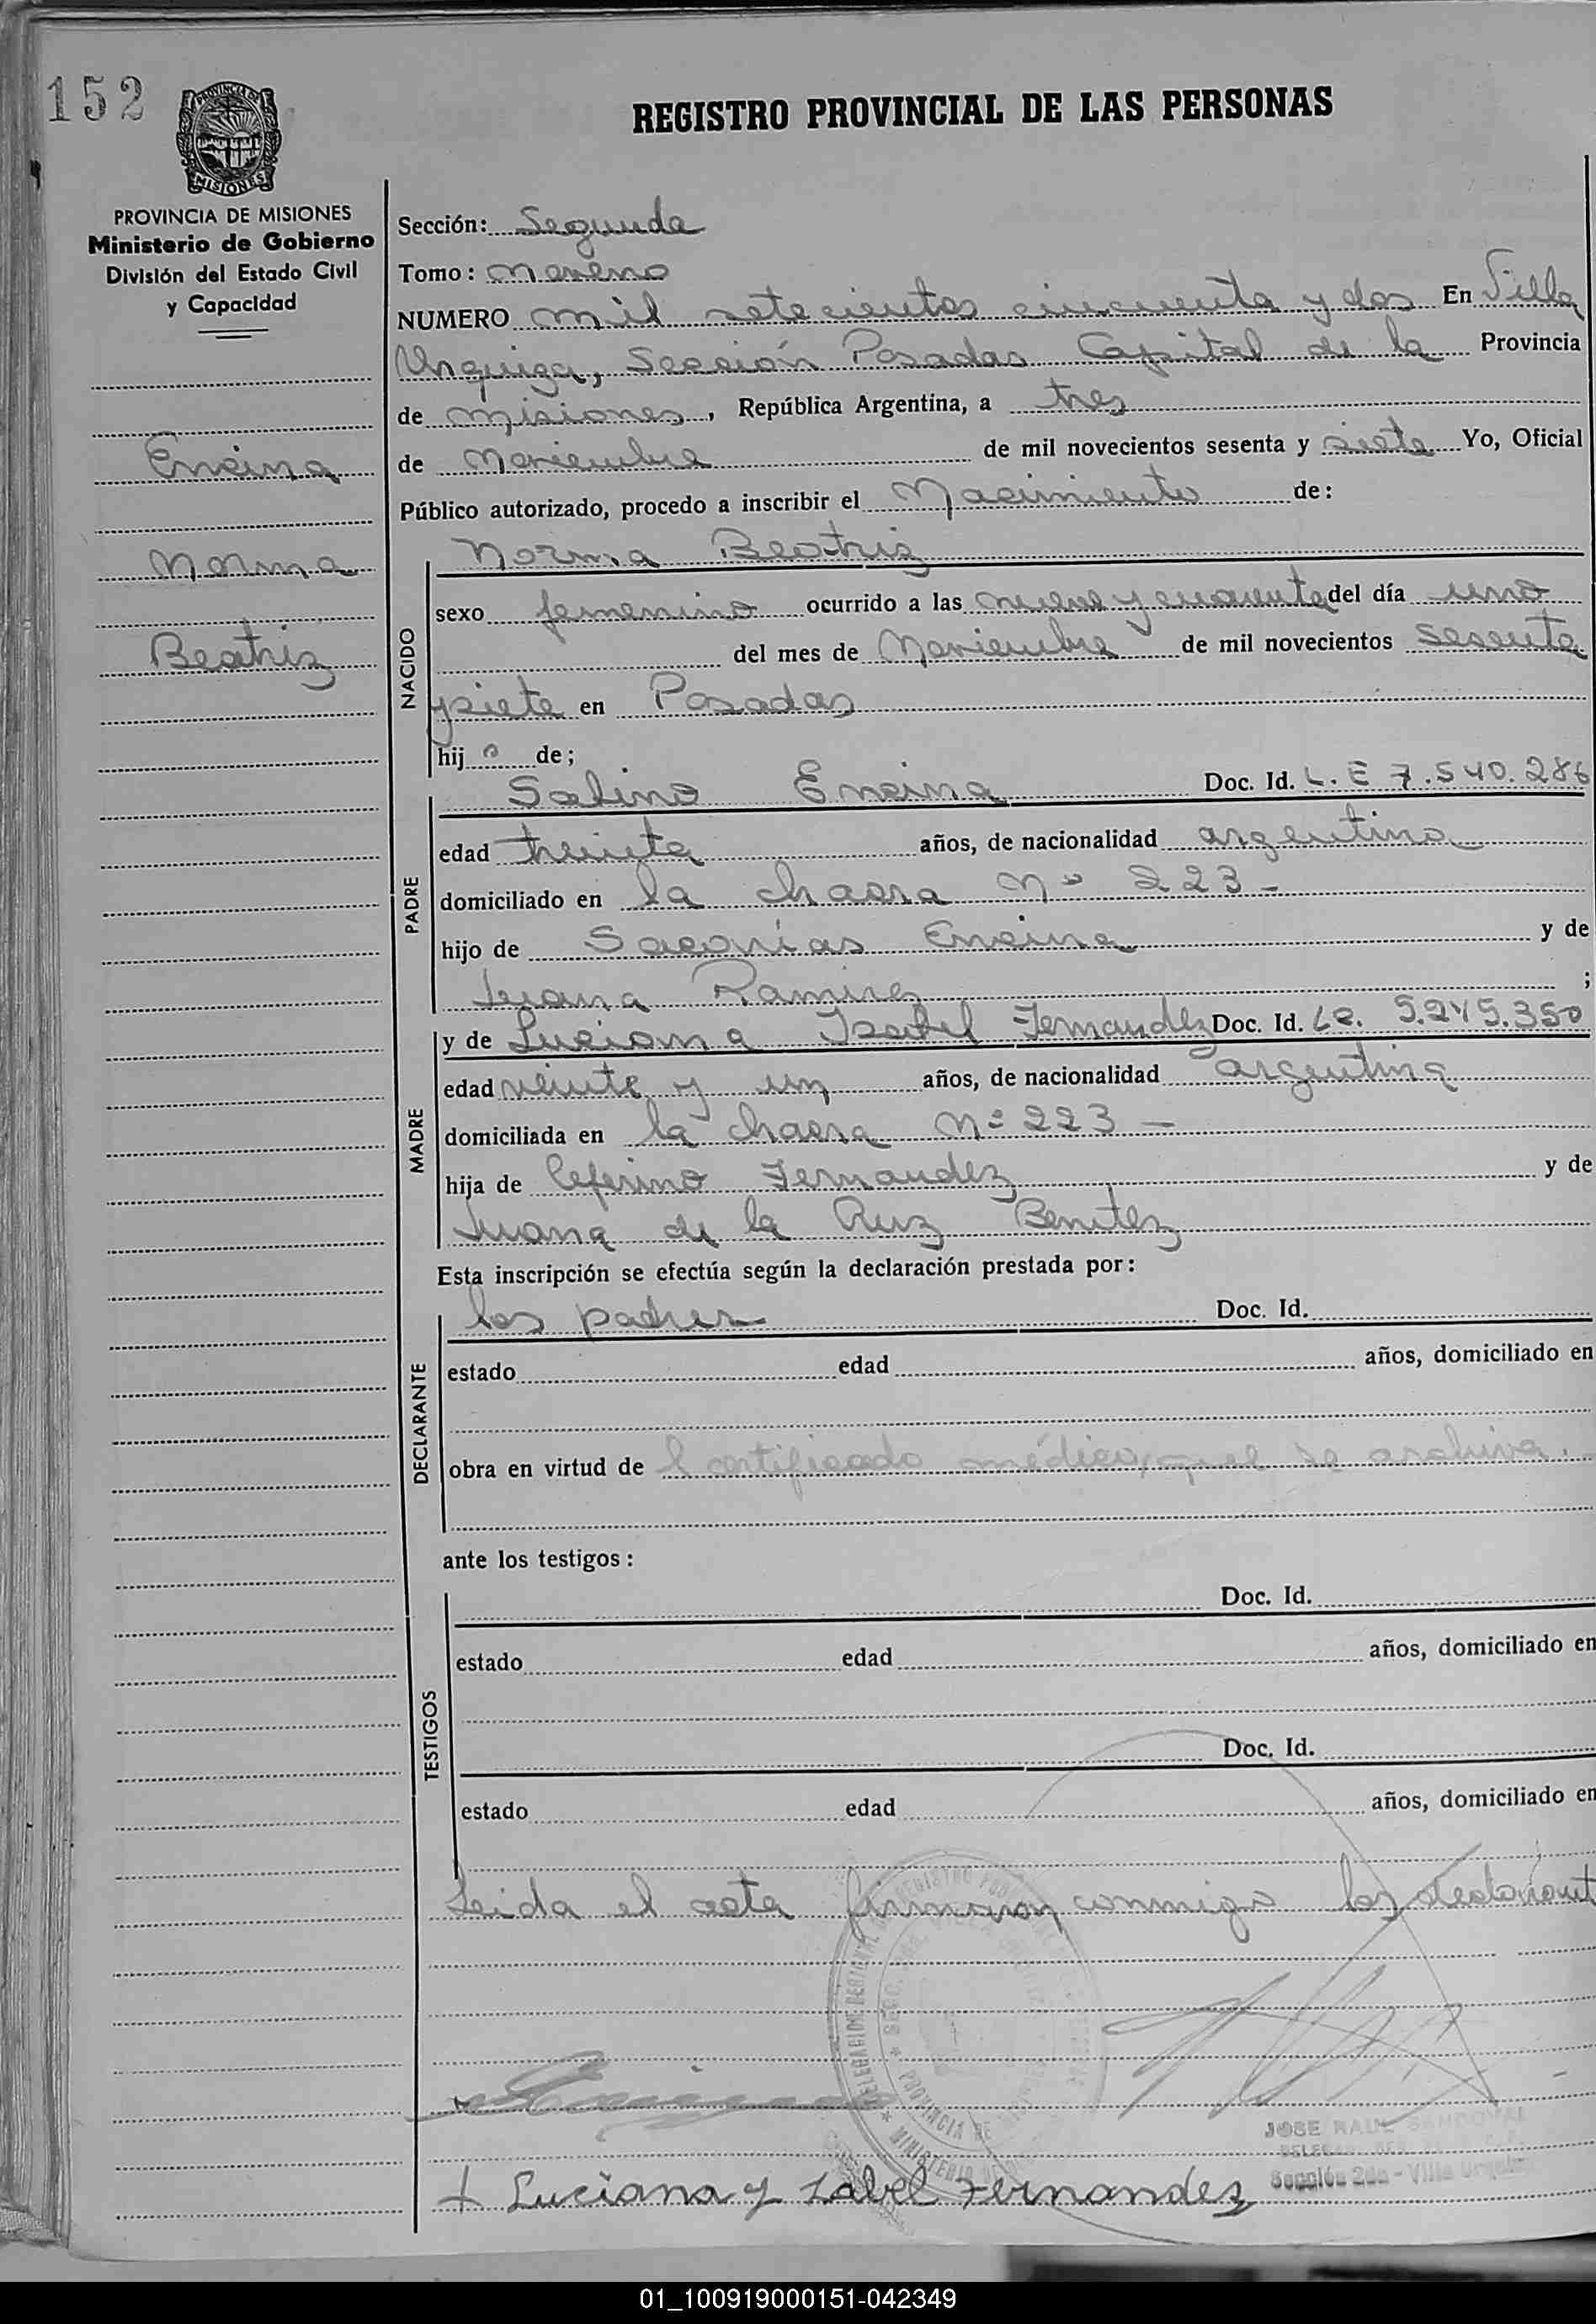 152
PROVINCIA DE MISIONES
MISIONES
PROVINCIA DE MISIONES
Ministerio de Gobierno
División del Estado Civil
y Capacidad
Encina
Norma
Beatriz
REGISTRO PROVINCIAL DE LAS PERSONAS
Sección: Segunda
Tomo: Noveno
NUMERO mil setecientos cincuenta y dos En Villa
Urquiza, Sección Posadas Capital de la Provincia
de Misiones, República Argentina, a tres
de Noviembre de mil novecientos sesenta y siete Yo, Oficial
Público autorizado, procedo a inscribir el Nacimiento de:
NACIDO
Norma Beatriz
sexo femenino ocurrido a las nueve y cuarenta del día uno
del mes de Noviembre de mil novecientos sesenta
y siete en Posadas
hij a de;
PADRE
Sabino Encina Doc. Id. L.E 7.540.286
edad treinta años, de nacionalidad argentino
domiciliado en la chacra Nº 223 -
hijo de Encina y de
Juana Ramirez ;
MADRE
y de Luciana Isabel Fernandez Doc. Id. Lc. 5.245.350
edad veinte y un años, de nacionalidad argentina
domiciliada en la chacra Nº 223 -
hija de Ceferino Fernandez y de
Juana de la Cruz Benitez
Esta inscripción se efectúa según la declaración prestada por:
DECLARANTE
los padres Doc. Id.
estado edad años, domiciliado en
obra en virtud de l certificado médico, que se archiva.
ante los testigos:
TESTIGOS
Doc. Id.
estado edad años, domiciliado en
Doc. Id.
estado edad años, domiciliado en
Leida el acta firmaron conmigo los
JOSE RAUL SANDOVAL
Sección 2da - Villa Urquiza
+ Luciana y zabel Fernandez
01_100919000151-042349